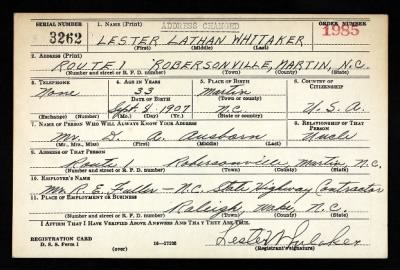 SERIAL NUMBER 1. NAME (Print) ADDRESS CHANGED ORDER NUMBER
3262 LESTER LATHAN WHITAKER 1985
(First) (Middle) (Last)
2. ADDRESS (Print)
ROUTE 1 ROBERSONVILLE, MARTIN, N.C.
(Number and street or R. F. D. number) (Town) (County) (State)
3. TELEPHONE 4. AGE IN YEARS 5. PLACE OF BIRTH 6. COUNTRY OF CITIZENSHIP
None 33 Martin
DATE OF BIRTH (Town or county)
Sept. 8, 1907 N.C. U.S.A.
(Exchange) (Number) (Mo.) (Day) (Yr.) (State or country)
7. NAME OF PERSON WHO WILL ALWAYS KNOW YOUR ADDRESS 8. RELATIONSHIP OF THAT PERSON
Mr. A. Ausborn Uncle
(Mr., Mrs., Miss) (First) (Middle) (Last)
9. ADDRESS OF THAT PERSON
Route 1 Robersonville, Martin, N.C.
(Number and street or R. F. D. number) (Town) (County) (State)
10. EMPLOYER'S NAME
Mr. R. E. Fuller - N.C. State Highway Contractor
11. PLACE OF EMPLOYMENT OR BUSINESS
Raleigh, Wake, N.C.
(Number and street or R. F. D. number) (Town) (County) (State)
I AFFIRM THAT I HAVE VERIFIED ABOVE ANSWERS AND THAT THEY ARE TRUE.
Lester Whitaker
REGISTRATION CARD (Registrant's signature)
D. S. S. Form 1 (over) 16-17105